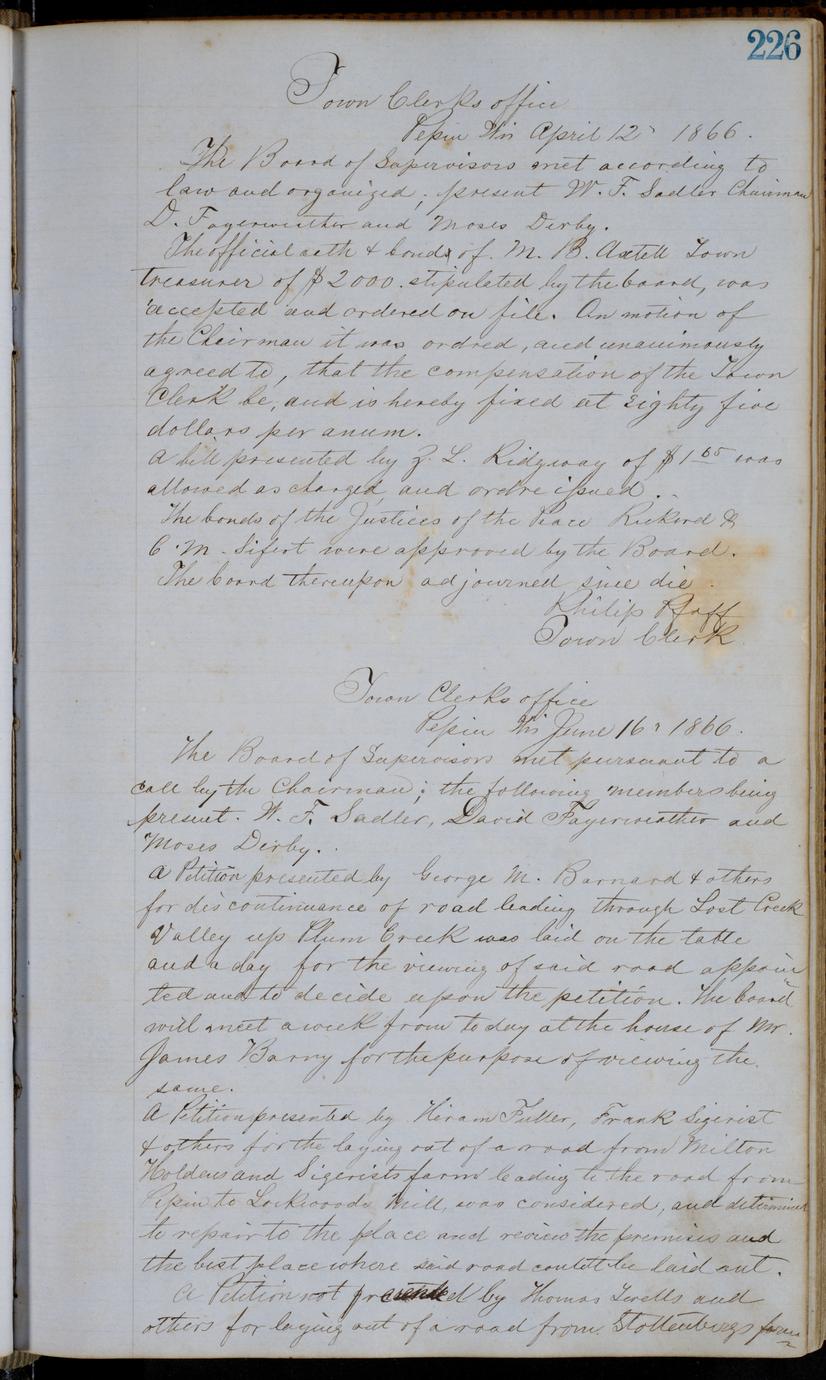 226
Town Clerks office
Pepin Wis April 12" 1866.
The Board of Supervisors met according to
law and organized; present W. F. Sadler Chairman
D. Fayerweather and Moses Derby.
The official oath & bonds of M. B. Axtell Town
treasurer of $2000. stipulated by the board, was
accepted and ordered on file. On motion of
the Chairman it was ordred, and unanimously
agreed to, that the compensation of the Town
Clerk be, and is hereby fixed at Eighty five
dollars per anum.
A bill presented by Z. L. Ridgway of $1 65 was
allowed as charged, and ordre issued.
The bonds of the Justices of the Peace Rickord &
C. M. Sifert were approved by the Board.
The board thereupon adjourned sine die.
Philip Pfaff
Town Clerk
Town Clerks office
Pepin Wis June 16" 1866.
The Board of Supervisors met pursuant to a
call by the Chairman; the following members being
present. W. F. Sadler, David Fayerweather and
Moses Dirby.
A Petition presented by George M. Barnard & others
for discontinuance of road leading through Lost Creek
Valley up Plum Creek was laid on the table
and a day for the viewing of said road appoin
ted and to decide upon the petition. The board
will meet a week from to day at the house of Mr.
James Barry for the purpose of viewing the
same.
A Petition presented by Hiram Fuller, Frank Sigerist
& others for the laying out of a road from Milton
Holdens and Sigerists farm leading to the road from
Pepin to Lockwoods Mill, was considered, and determined
to repair to the place and review the premises and
the best place where said road could be laid out.
A Petition not presented by Thomas and
others for laying out of a road from Stottenbergs farm